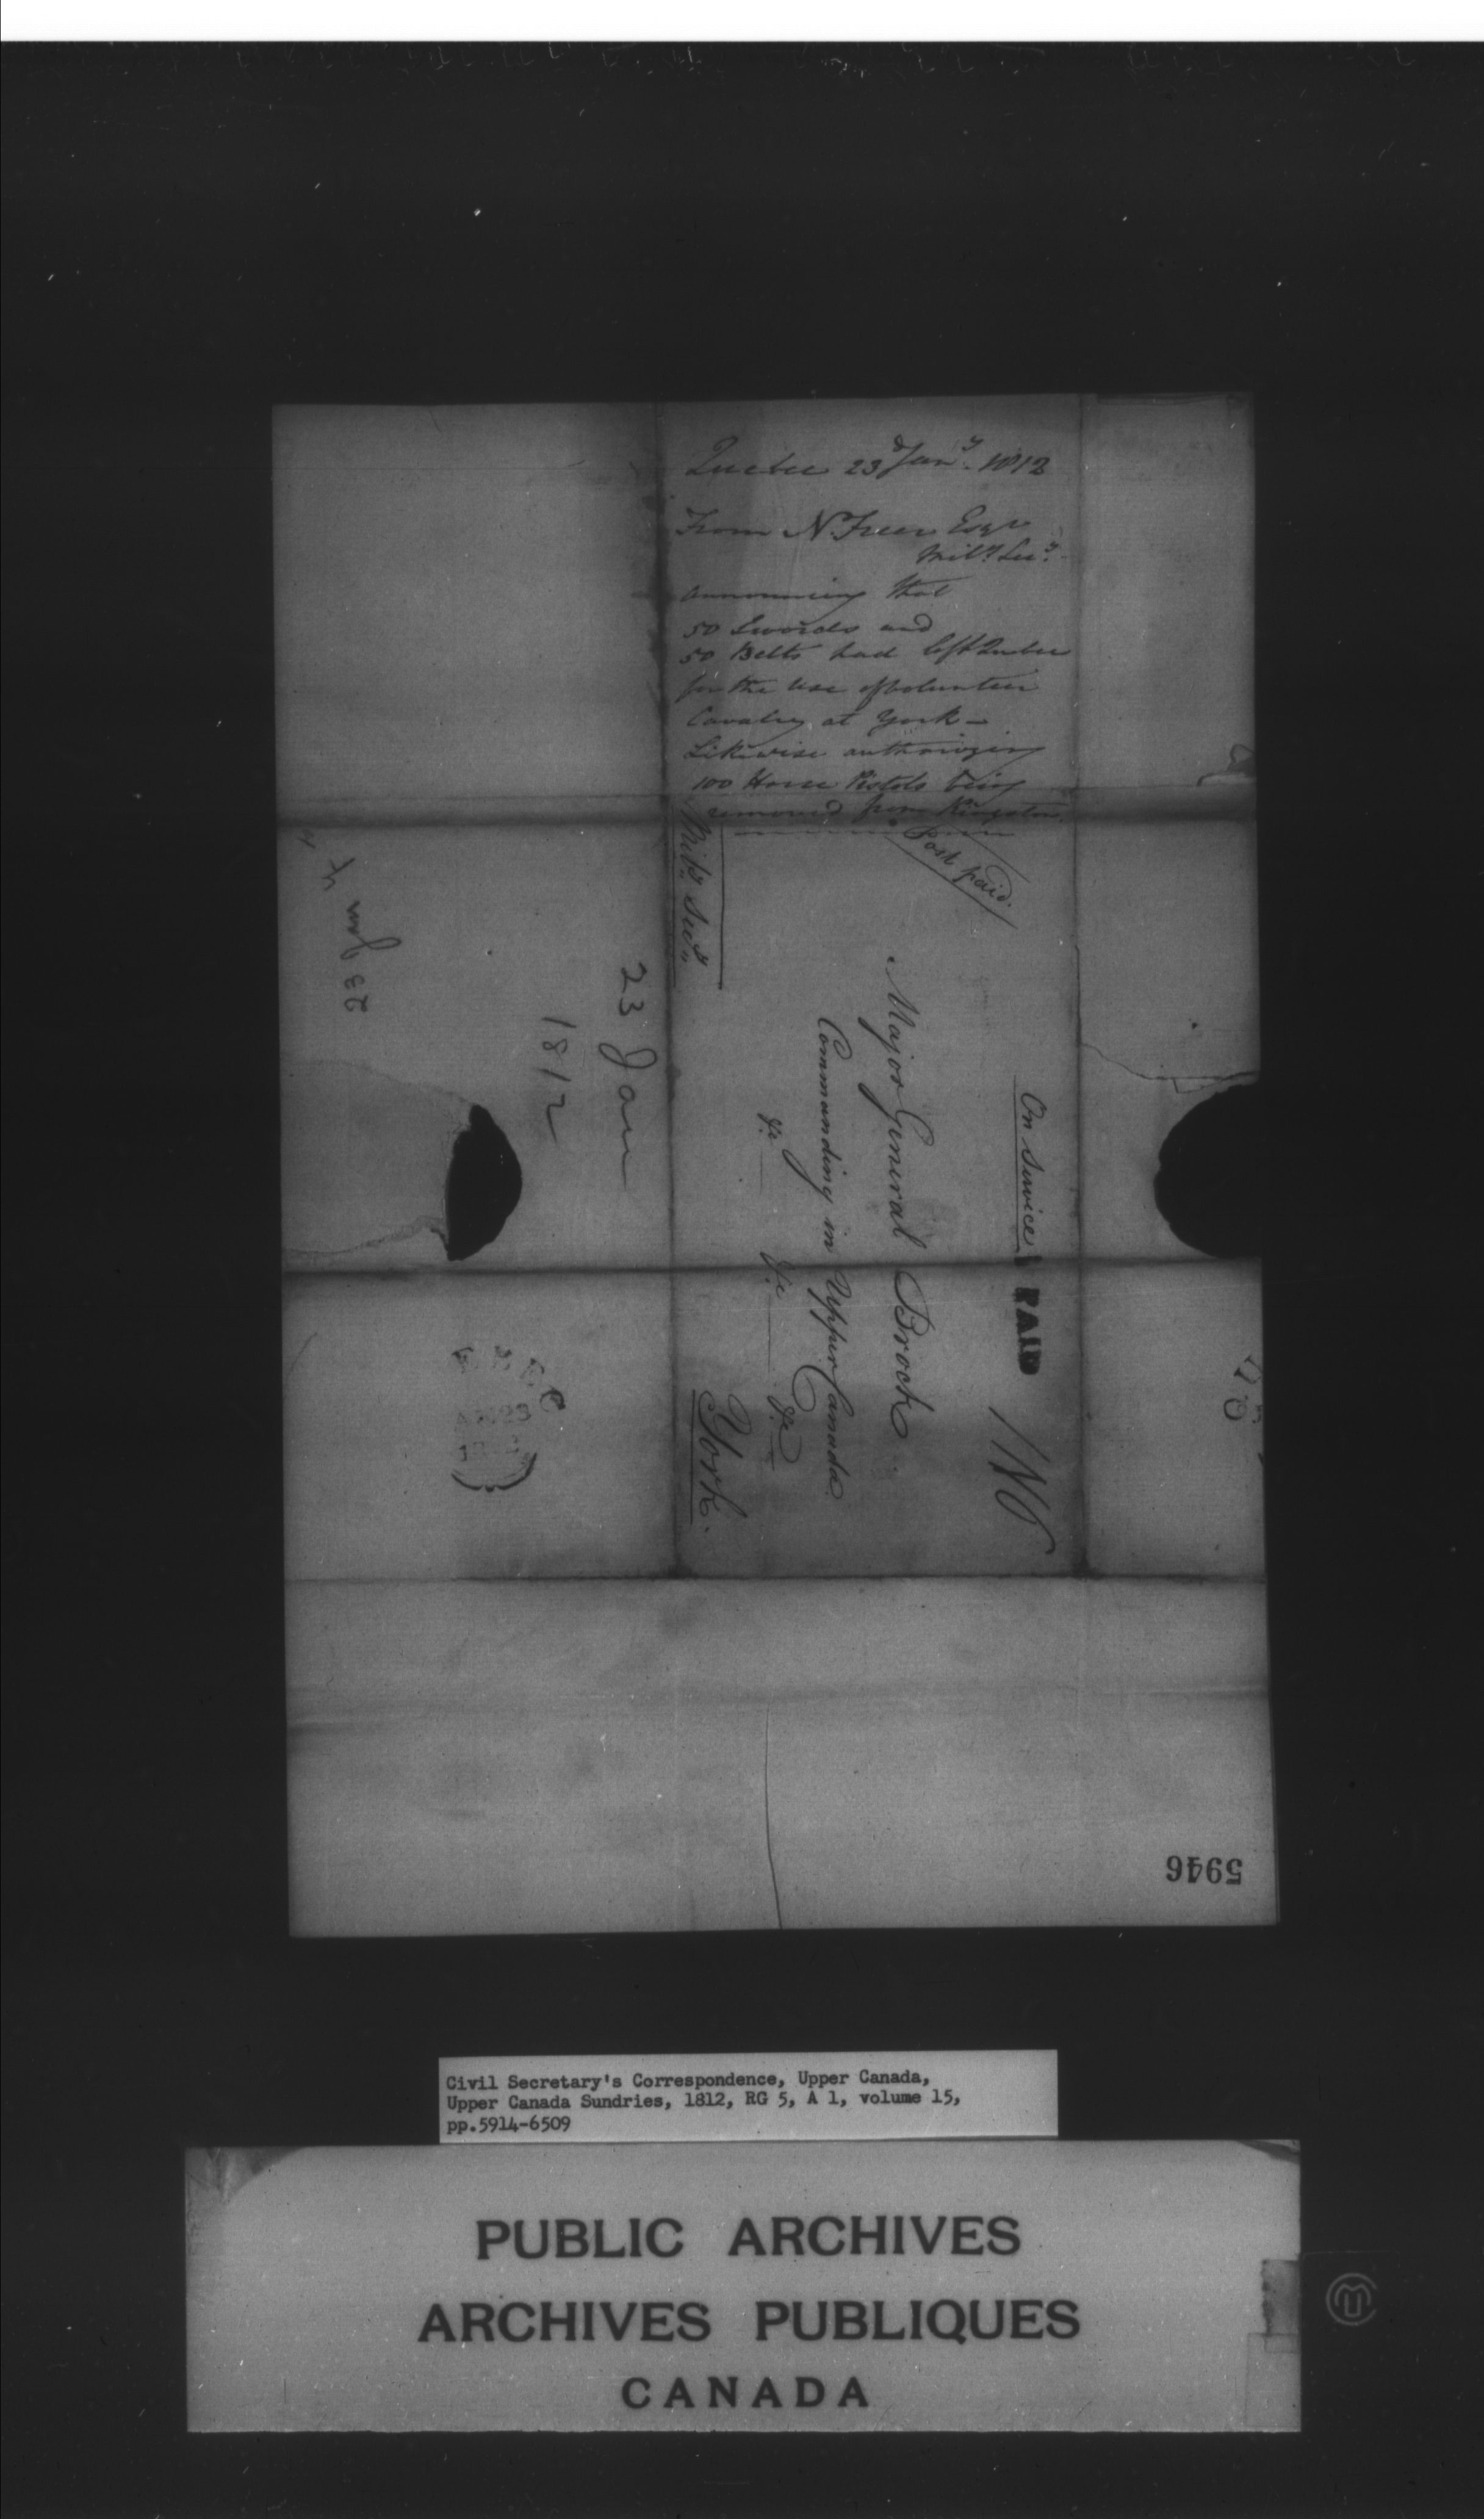 Quebec 23d Jany. 1812
From N. Freer Esqr
Mily. Secy.
announcing that
50 Swords and
50 Belts had left Quebec
for the use of Volunteer
Cavalry at York —
Likewise authorizing
100 Horse Pistols being
removed from Kingston.
Post paid.
On Service
PAID
Major General Brock
Commanding in Upper Canada
&c — &c — &c —
York.
Mily. Secy.
23 Jan
1812
23 Jan
5946
Civil Secretary's Correspondence, Upper Canada,
Upper Canada Sundries, 1812, RG 5, A 1, volume 15,
pp.5914-6509
PUBLIC ARCHIVES
ARCHIVES PUBLIQUES
CANADA